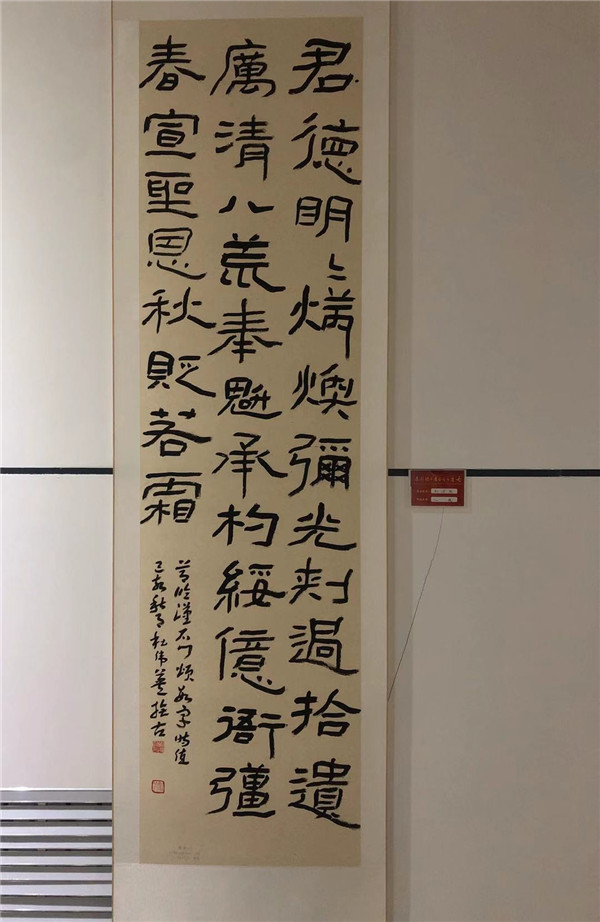 君德明〻炳煥彌光刺過拾遺
厲清八荒奉魁承杓綏億衙彊
春宣聖恩秋貶若霜
節臨漢石门頌數字時值
己亥秋月杜伟